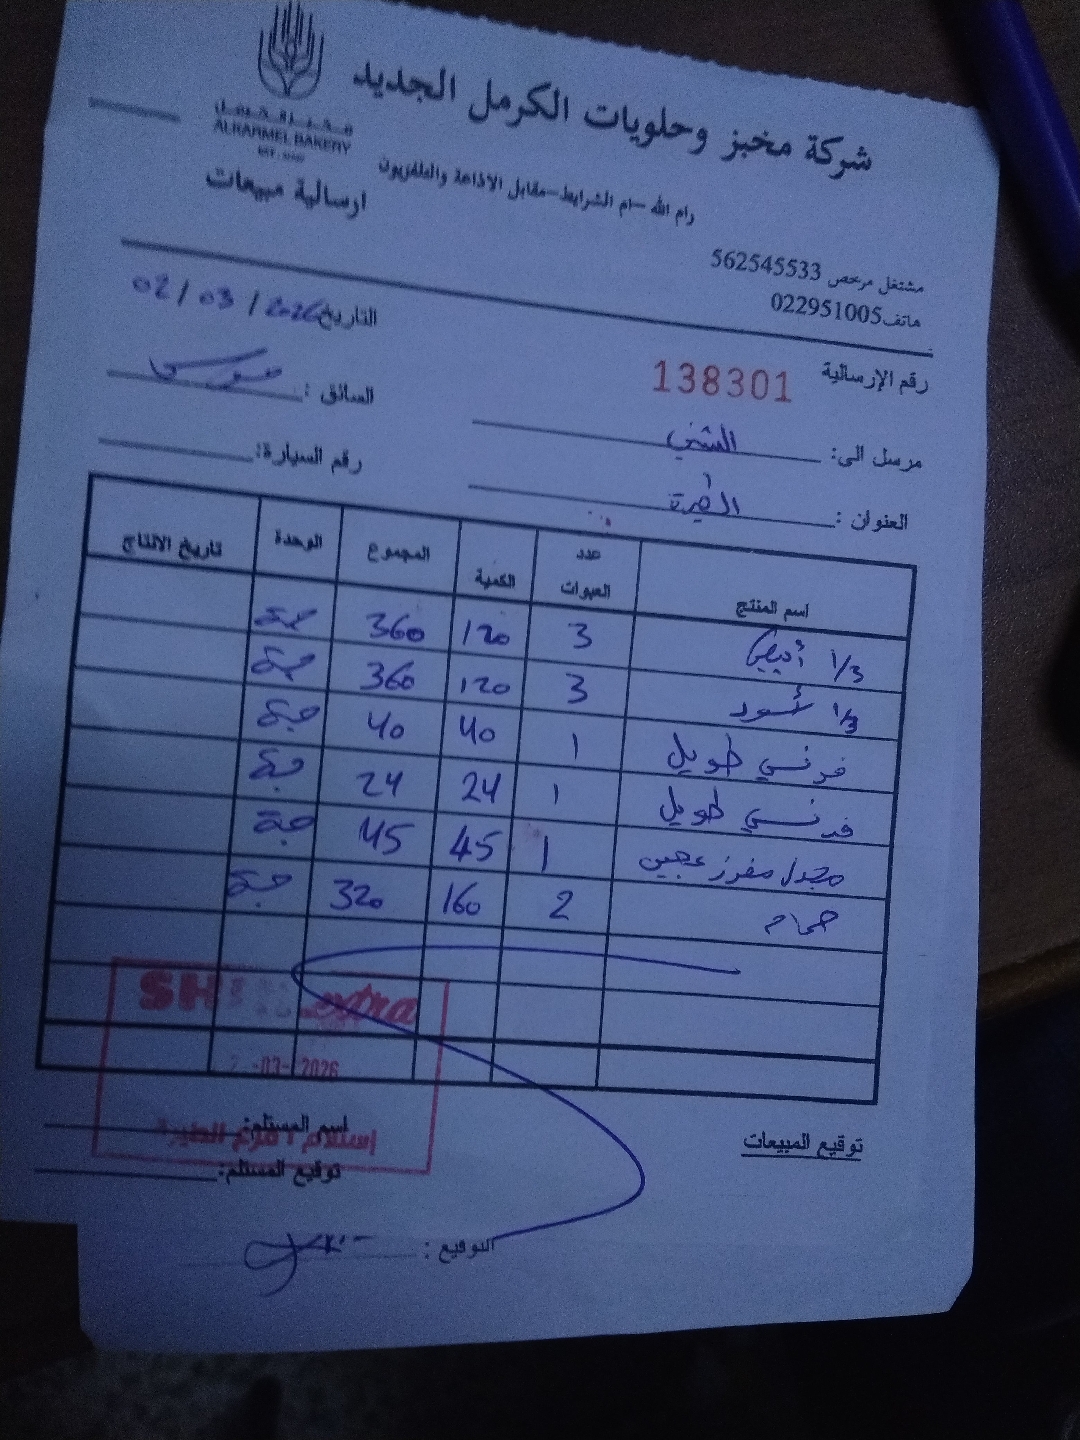 شركة مخبز وحلويات الكرمل الجديد
ALKARMEL BAKERY
رام الله -ام الشرايط-مقابل الاذاعة والتلفزيون
ارسالية مبيعات
مشتغل مرخص 562545533
هاتف022951005
التاريخ 02 / 03 / 2026
رقم الإرسالية 138301
السائق :
مرسل الى: الشني
رقم السيارة:
العنوان : الطيرة
اسم المنتج عدد العبوات الكمية المجموع الوحدة تاريخ الانتاج
1/3 أبيض 3 120 360 حبة
1/3 أسود 3 120 360 حبة
فرنسي طويل 1 40 40 حبة
فرنسي طويل 1 24 24 حبة
مجدل مفرز عجين 1 45 45 حبة
حمام 2 160 320 حبة
extra
-03- 2026
إستلام / فرع الطيرة
اسم المستلم:
توقيع المبيعات
توقيع المستلم:
التوقيع :